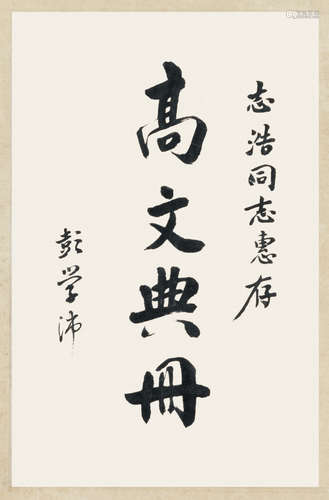 志浩同志惠存
高文典冊
彭学沛